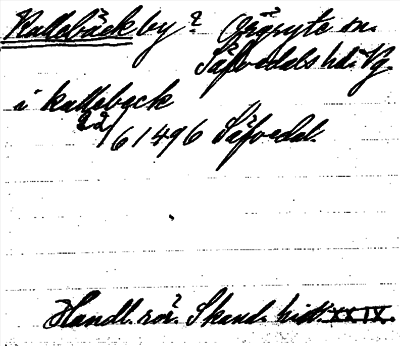 Kallebäck by? Örgryte sn.
Säfvedals hd. Vg.
i kallebeck
22/6 1496 Säfvedal.
Handl. rör. Skand. hist. XXIV.